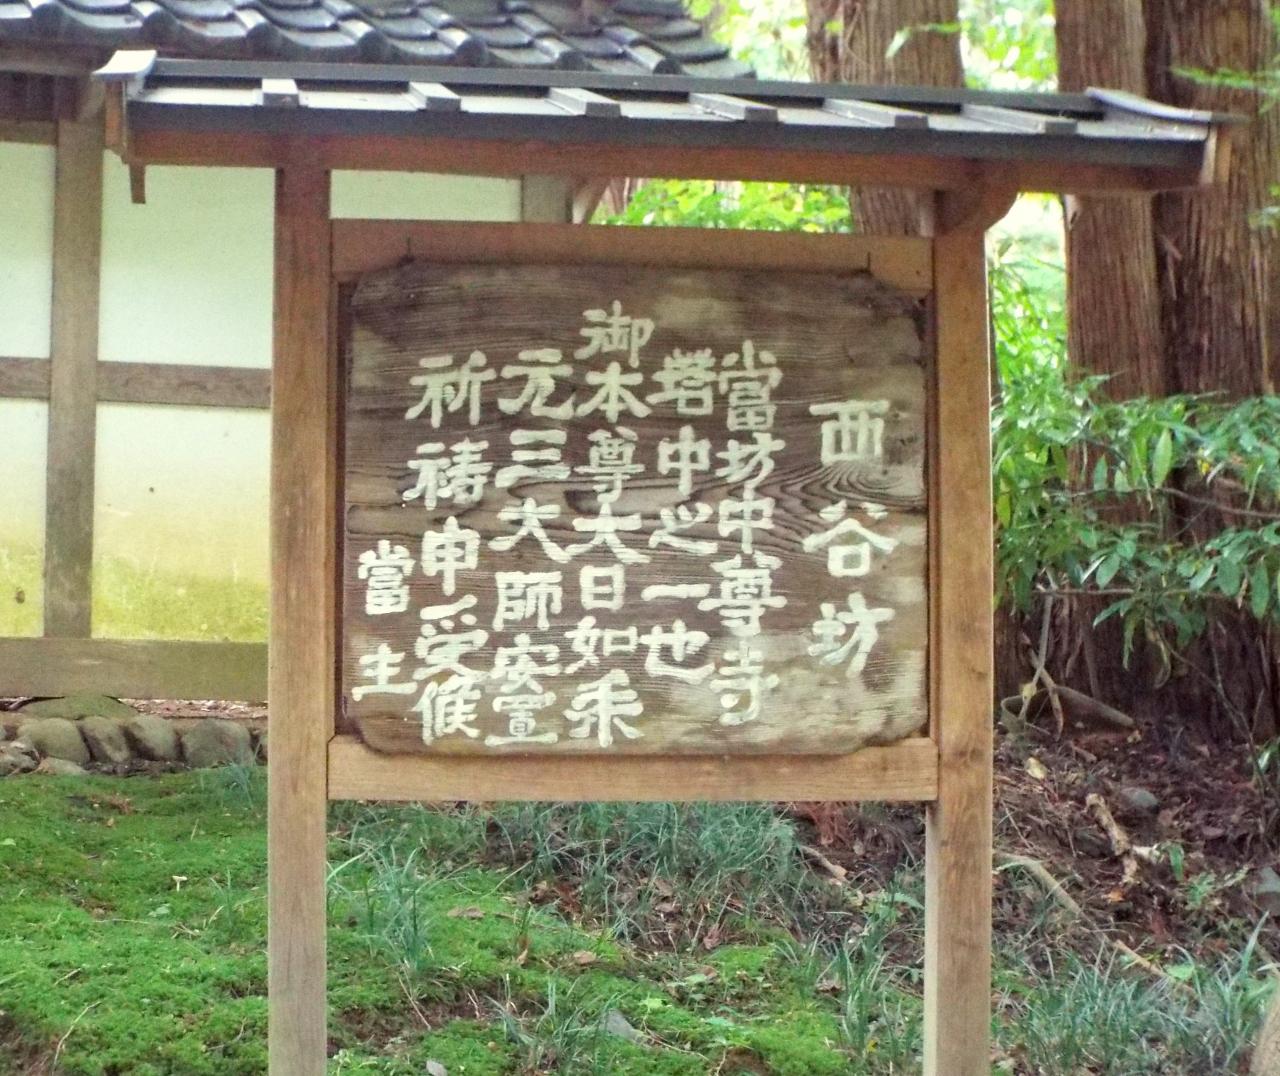 西谷坊
當坊中尊寺
塔中之一也
御本尊大日如来
元三大師安置
祈祷申受候
當主